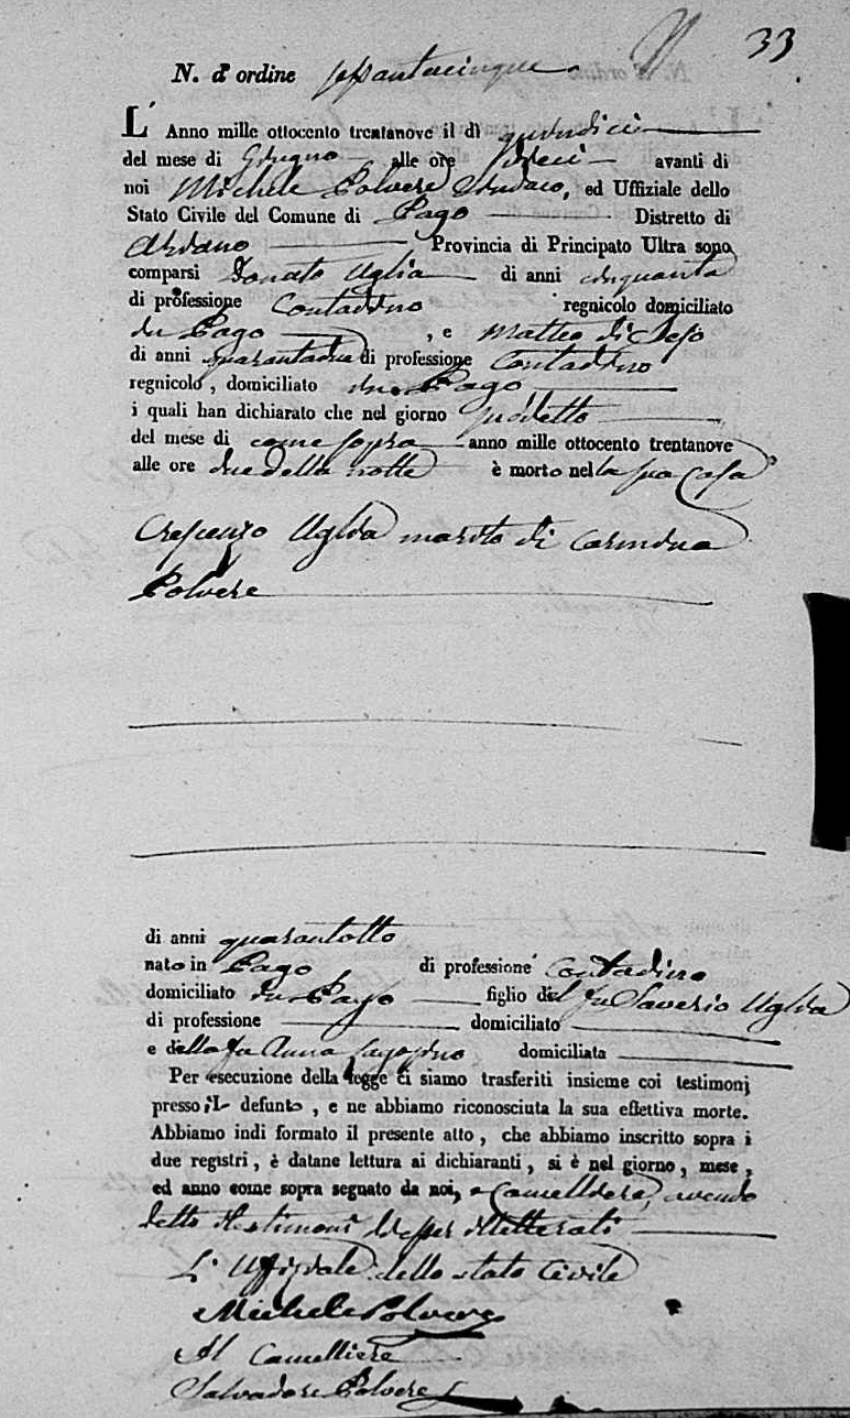 33
N. d'ordine sessantacinque
L'Anno mille ottocento trentanove il dì quindici
del mese di Giugno alle ore dieci avanti di
noi Michele Polvere Sindaco, ed Uffiziale dello
Stato Civile del Comune di Pago Distretto di
Ariano Provincia di Principato Ultra sono
comparsi Donato Uglia di anni cinquanta
di professione Contadino regnicolo domiciliato
in Pago , e Matteo di
di anni quarantadue di professione Contadino
regnicolo, domiciliato in Pago
i quali han dichiarato che nel giorno sudetto
del mese di come sopra anno mille ottocento trentanove
alle ore due della notte è morto nella sua Casa
Crescenzo Uglia marito di Carmina
Polvere
di anni quarantotto
nato in Pago di professione Contadino
domiciliato in Pago figlio del fu Saverio Uglia
di professione domiciliato
e della fu Anna domiciliata
Per esecuzione della legge ci siamo trasferiti insieme coi testimonj
presso il defunto, e ne abbiamo riconosciuta la sua effettiva morte.
Abbiamo indi formato il presente atto, che abbiamo inscritto sopra i
due registri, è datane lettura ai dichiaranti, si è nel giorno, mese,
ed anno come sopra segnato da noi, e Cancelliere, avendo
detto i testimoni d'esser illetterati
L'Uffiziale dello stato Civile
Michele Polvere
Il Cancelliere
Salvadore Polvere